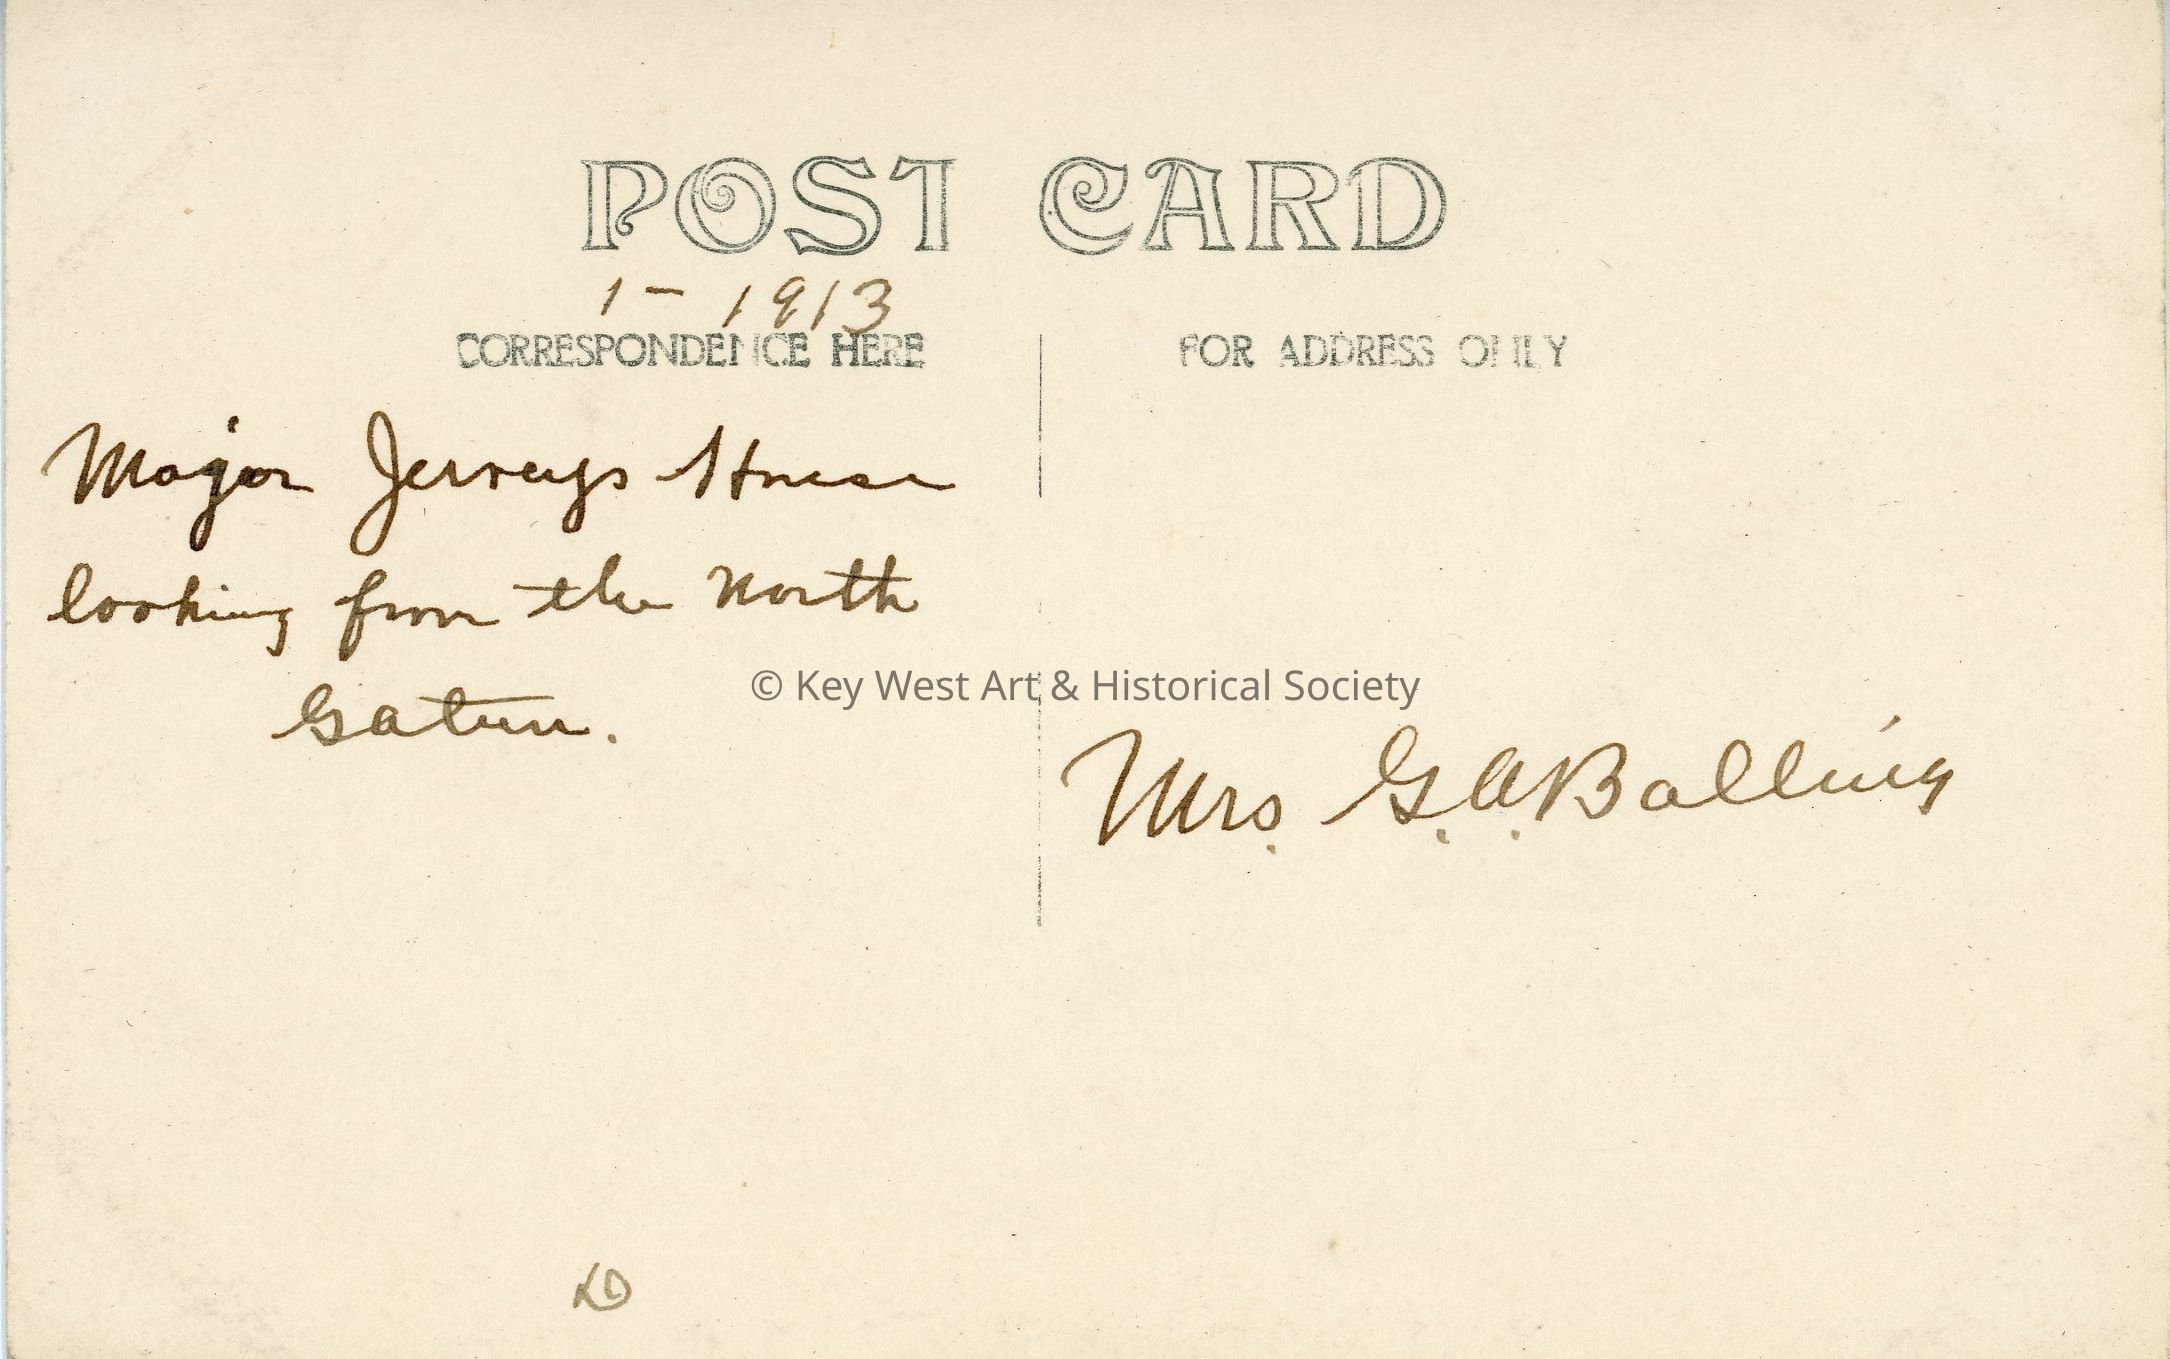 POST CARD
1 - 1913
CORRESPONDENCE HERE
FOR ADDRESS ONLY
Major Jerveys House
looking from the North
Gatun.
© Key West Art & Historical Society
Mrs. G. A. Balling